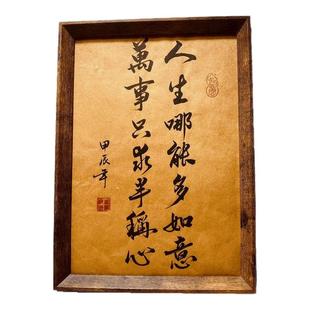 人生哪能多如意
萬事只求半稱心
甲辰年